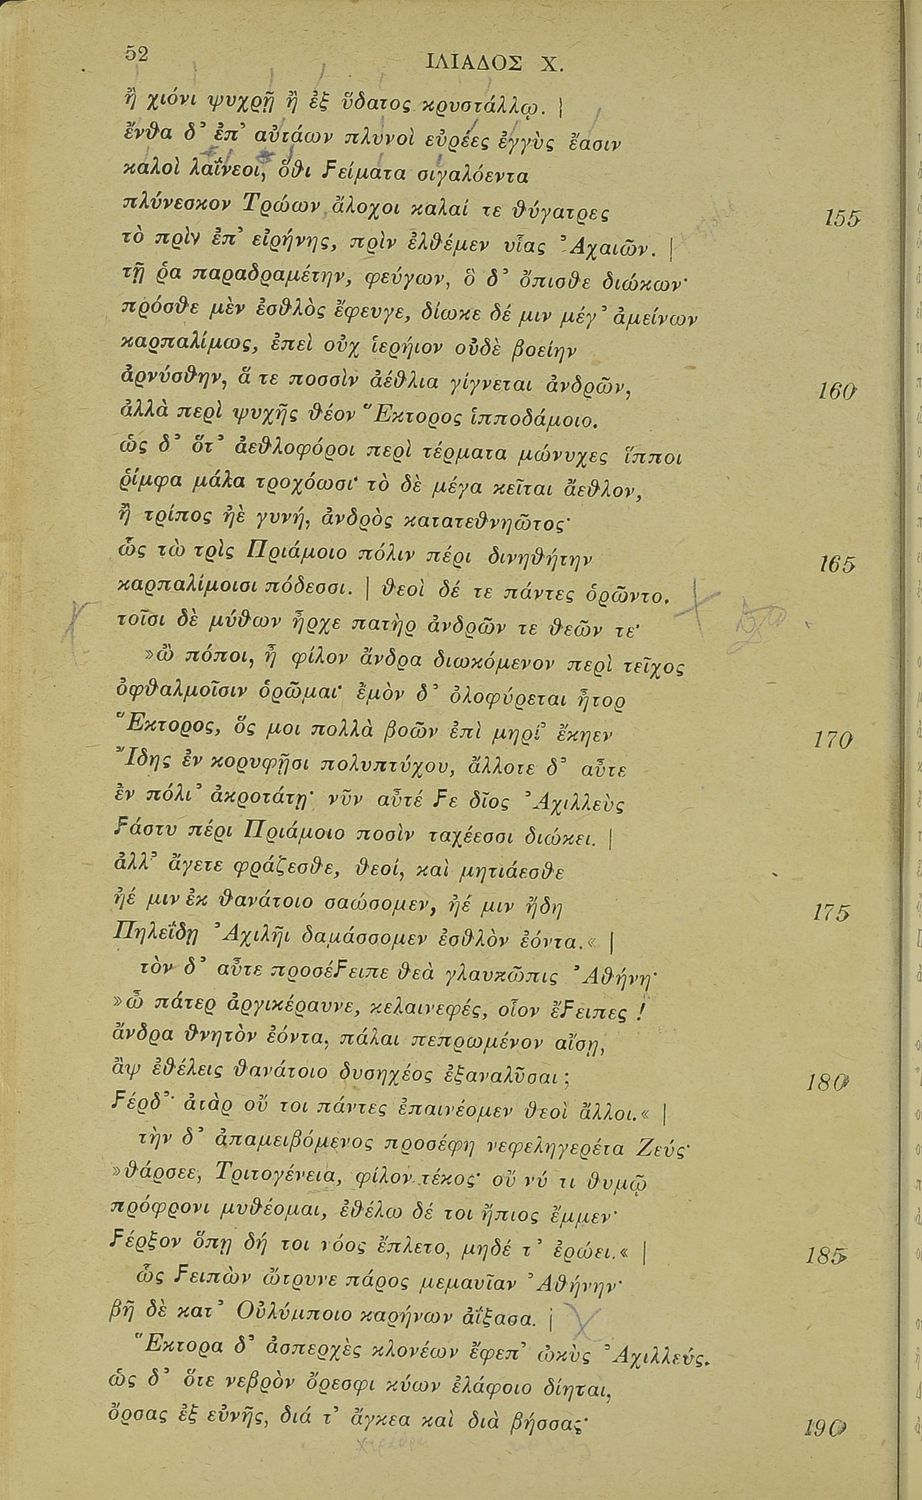 52
ΙΛΙΑΔΟΣ Χ.
ἢ χιόνι ψυχρῇ ἢ ἐξ ὕδατος κρυστάλλῳ. |
ἔνθα δ᾽ ἐπ᾽ αὐτάων πλυνοὶ εὐρέες ἐγγὺς ἔασιν
καλοὶ λαΐνεοι, ὅθι Ϝείματα σιγαλόεντα
πλύνεσκον Τρώων ἄλοχοι καλαί τε θύγατρες 155
τὸ πρὶν ἐπ᾽ εἰρήνης, πρὶν ἐλθέμεν υἷας Ἀχαιῶν. |
τῇ ῥα παραδραμέτην, φεύγων, ὃ δ᾽ ὄπισθε διώκων·
πρόσθε μὲν ἐσθλὸς ἔφευγε, δίωκε δέ μιν μέγ᾽ ἀμείνων
καρπαλίμως, ἐπεὶ οὐχ ἱερήιον οὐδὲ βοείην
ἀρνύσθην, ἅ τε ποσσὶν ἀέθλια γίγνεται ἀνδρῶν, 160
ἀλλὰ περὶ ψυχῆς θέον Ἕκτορος ἱπποδάμοιο.
ὡς δ᾽ ὅτ᾽ ἀεθλοφόροι περὶ τέρματα μώνυχες ἵπποι
ῥίμφα μάλα τροχόωσι· τὸ δὲ μέγα κεῖται ἄεθλον,
ἢ τρίπος ἠὲ γυνή, ἀνδρὸς κατατεθνηῶτος·
ὣς τὼ τρὶς Πριάμοιο πόλιν πέρι δινηθήτην 165
καρπαλίμοισι πόδεσσι. | θεοὶ δέ τε πάντες ὁρῶντο.
τοῖσι δὲ μύθων ἦρχε πατὴρ ἀνδρῶν τε θεῶν τε·
»ὢ πόποι, ἦ φίλον ἄνδρα διωκόμενον περὶ τεῖχος
ὀφθαλμοῖσιν ὁρῶμαι· ἐμὸν δ᾽ ὀλοφύρεται ἦτορ
Ἕκτορος, ὅς μοι πολλὰ βοῶν ἐπὶ μηρί᾽ ἔκηεν 170
Ἴδης ἐν κορυφῇσι πολυπτύχου, ἄλλοτε δ᾽ αὖτε
ἐν πόλι᾽ ἀκροτάτῃ· νῦν αὖτέ Ϝε δῖος Ἀχιλλεὺς
Ϝάστυ πέρι Πριάμοιο ποσὶν ταχέεσσι διώκει. |
ἀλλ᾽ ἄγετε φράζεσθε, θεοί, καὶ μητιάεσθε
ἠέ μιν ἐκ θανάτοιο σαώσομεν, ἠέ μιν ἤδη 175
Πηλεΐδῃ Ἀχιλῆι δαμάσσομεν ἐσθλὸν ἐόντα.« |
τὸν δ᾽ αὖτε προσέϜειπε θεὰ γλαυκῶπις Ἀθήνη·
»ὦ πάτερ ἀργικέραυνε, κελαινεφές, οἷον ἔϜειπες !
ἄνδρα θνητὸν ἐόντα, πάλαι πεπρωμένον αἴσῃ,
ἂψ ἐθέλεις θανάτοιο δυσηχέος ἐξαναλῦσαι; 180
Ϝέρδ᾽· ἀτὰρ οὔ τοι πάντες ἐπαινέομεν θεοὶ ἄλλοι.« |
τὴν δ᾽ ἀπαμειβόμενος προσέφη νεφεληγερέτα Ζεύς·
»θάρσεε, Τριτογένεια, φίλον τέκος· οὔ νύ τι θυμῷ
πρόφρονι μυθέομαι, ἐθέλω δέ τοι ἤπιος ἔμμεν·
Ϝέρξον ὅπῃ δή τοι νόος ἔπλετο, μηδέ τ᾽ ἐρώει.« | 185
ὣς Ϝειπὼν ὤτρυνε πάρος μεμαυῖαν Ἀθήνην·
βῆ δὲ κατ᾽ Οὐλύμποιο καρήνων ἀΐξασα. |
Ἕκτορα δ᾽ ἀσπερχὲς κλονέων ἔφεπ᾽ ὠκὺς Ἀχιλλεύς.
ὡς δ᾽ ὅτε νεβρὸν ὄρεσφι κύων ἐλάφοιο δίηται,
ὄρσας ἐξ εὐνῆς, διά τ᾽ ἄγκεα καὶ διὰ βήσσας· 190